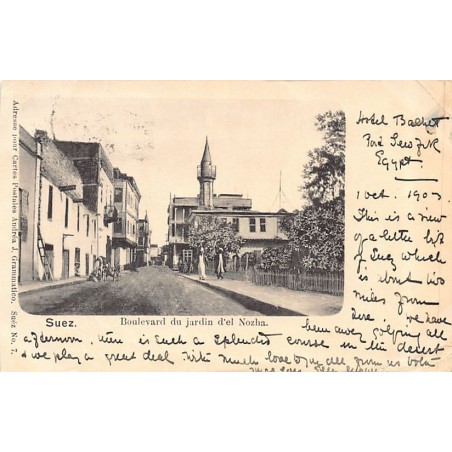 Adresse pour Cartes Postales Andréa J. Grammatico, Suez No. 7.
Hotel
Port Tewfik
Egypt.
1 Oct. 1903
This is a view
of a little bit
of Suez which
is about two
miles from
here. we have
Suez.
Boulevard du jardin d'el Nozha.
been away golfing all
afternoon. there is such a splendid course in the desert
& we play a great deal with much love to you all from us both